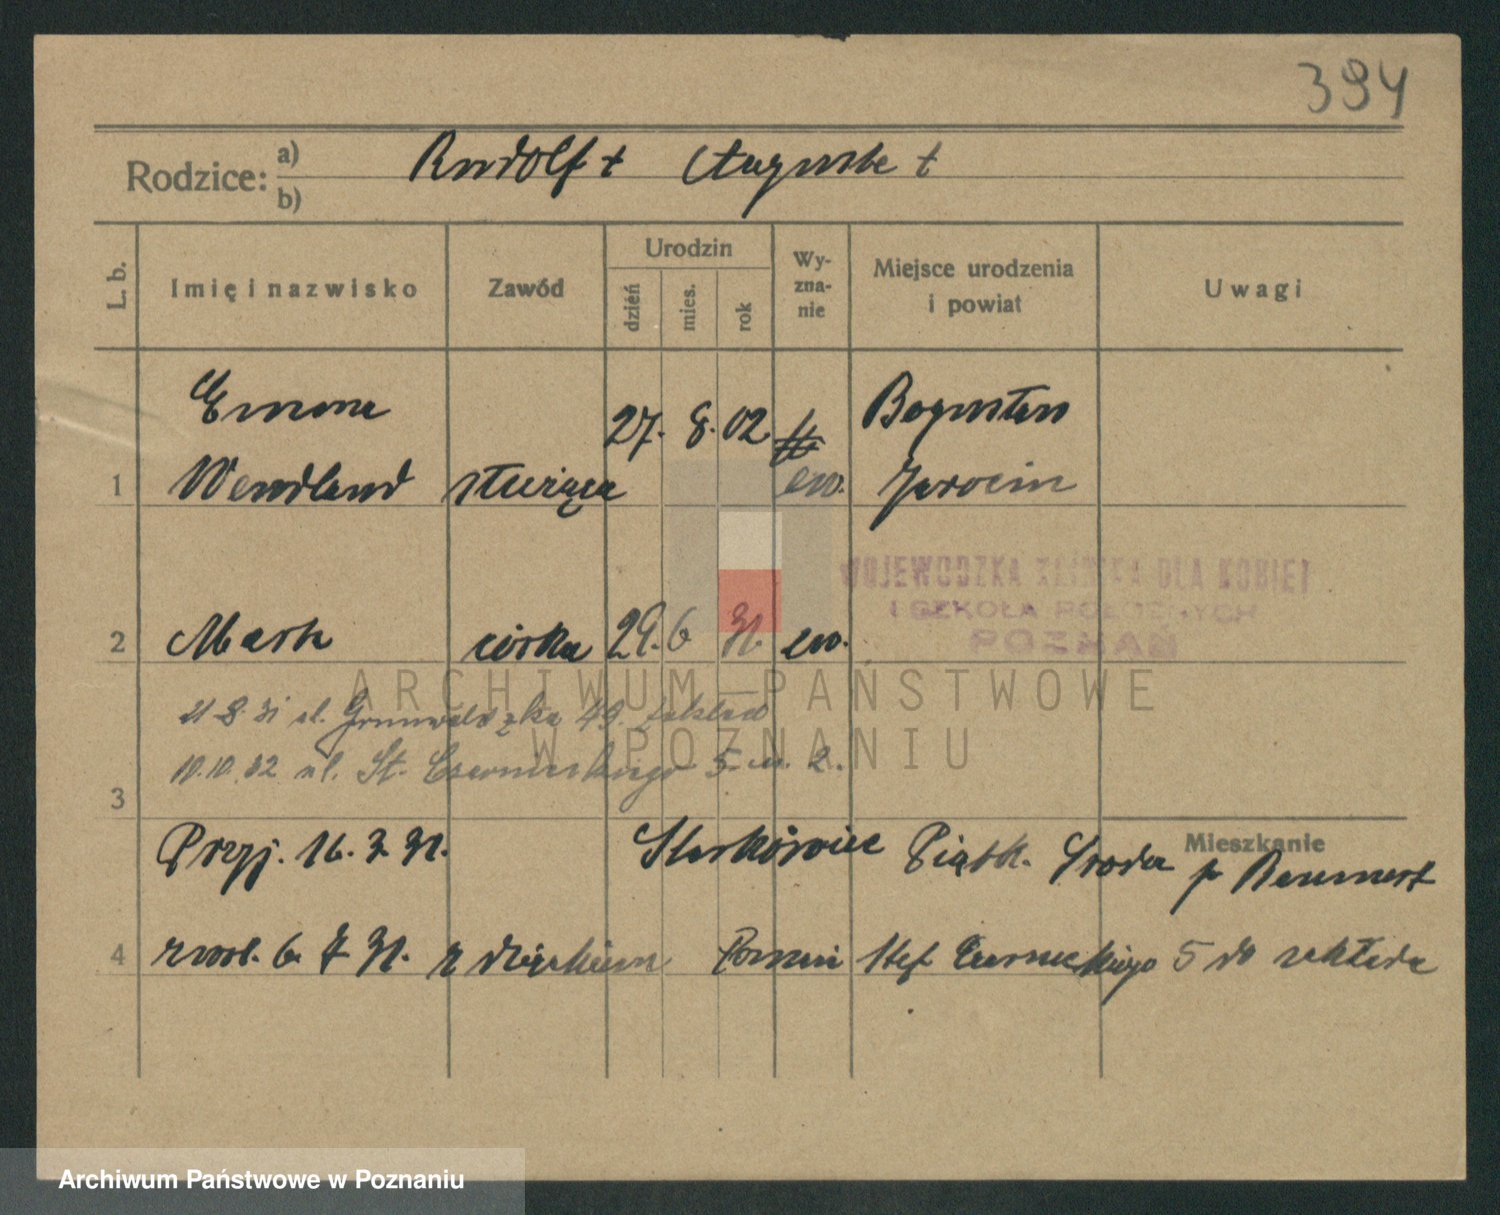 394
Rodzice: a) Rudolf + Auguste +
b)
L. b. Imię i nazwisko Zawód Urodzin dzień mies. rok Wyznanie Miejsce urodzenia i powiat Uwagi
Emma 27. 8. 02 Bogusław
1 Wendland służąca ew. Jarocin
WOJEWÓDZKA KLINIKA DLA KOBIET
I SZKOŁA POŁOŻNYCH
POZNAŃ
2 córka 29. 6 31. ew.
ARCHIWUM PAŃSTWOWE
W POZNANIU
21.8.31 ul. Grunwaldzka 49. zakład
10.10.32 ul. St. Czarnieckiego 5 m. 2.
3
Mieszkanie
Przyj. 16. 3. 31. Środa p.
4 zwol. 6. 7. 31. z dzieckiem Poznań Stef. Czarneckiego 5 do zakładu
Archiwum Państwowe w Poznaniu